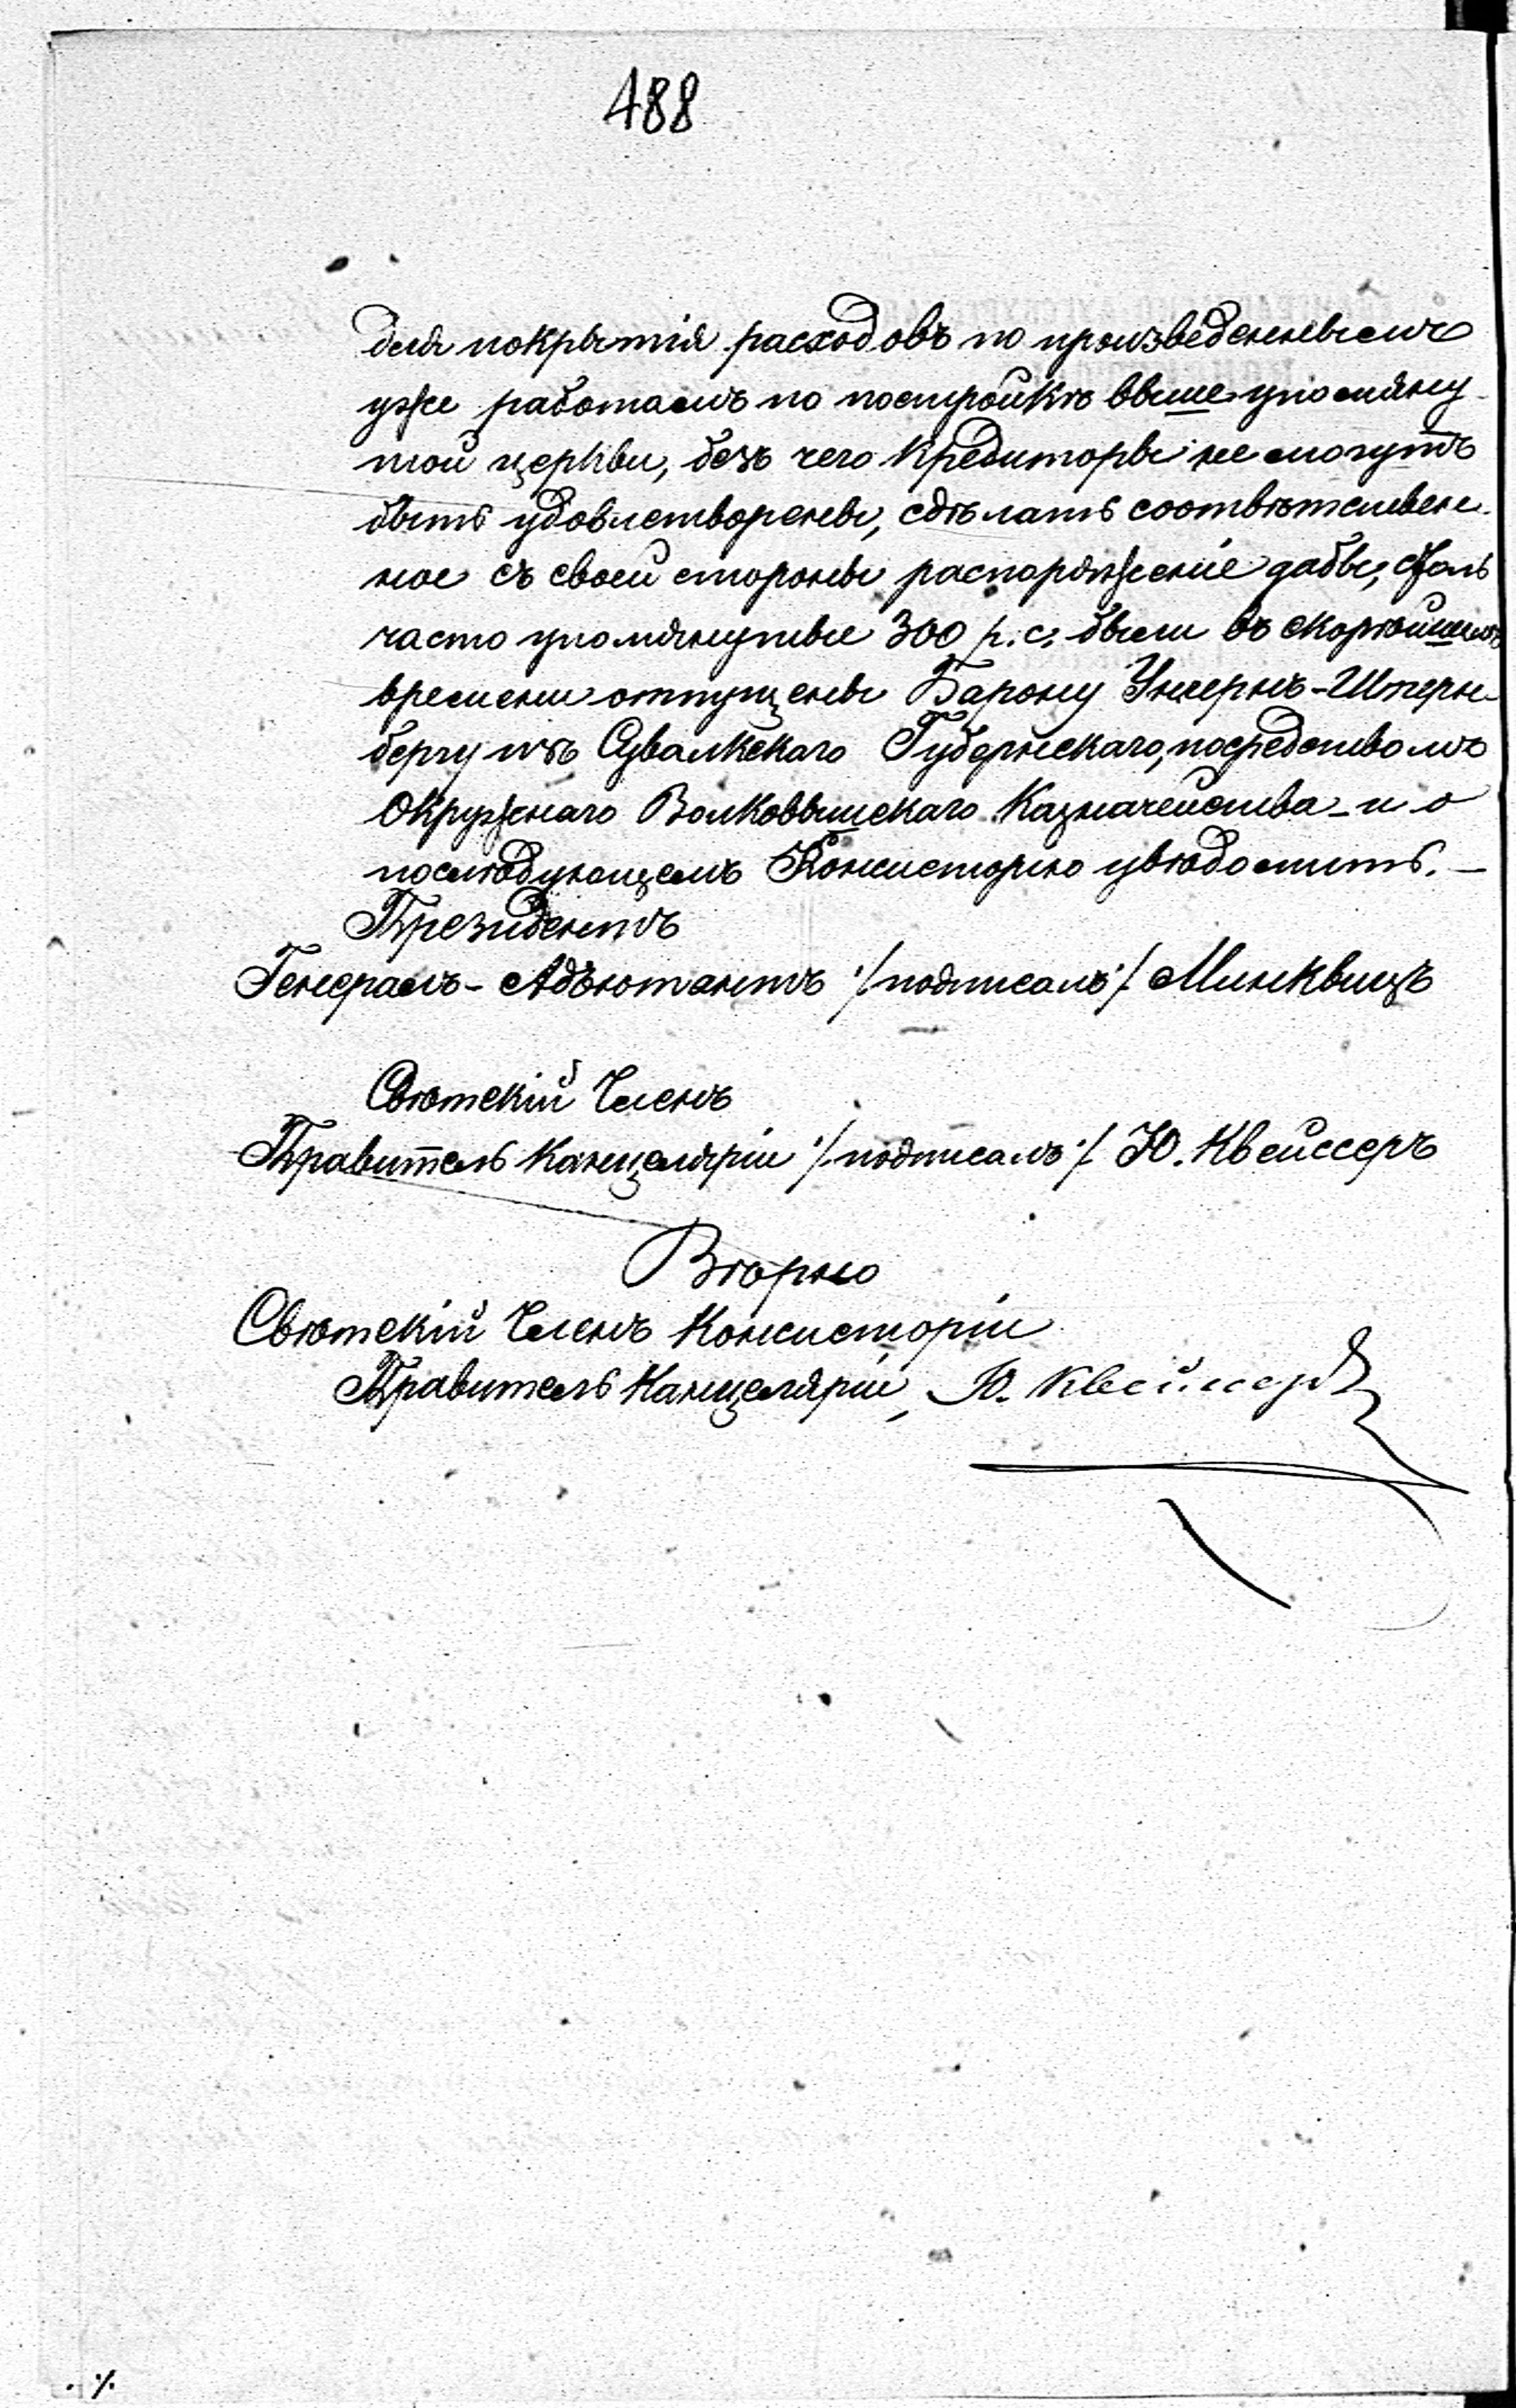 488
для покрытія расходовъ по произведеннымъ
уже работамъ по постройкѣ выше упомяну-
той церкви, безъ чего кредиторы не могутъ
быть удовлетворены, сдѣлать соотвѣтствен-
ное съ своей стороны распоряженіе дабы, столь
часто упомянутые 300 р. с. были въ скорѣйшемъ
времени отпущены Барону Унгернъ-Штерн-
бергу изъ Сувалкскаго Губернскаго, посредствомъ
Окружнаго Волковышскаго Казначейства - и о
послѣдующемъ Консисторію увѣдомить. —
Президентъ
Генералъ-Адъютантъ /подписалъ/ Минквицъ
Свѣтскій Членъ
Правитель Канцеляріи /подписалъ/ Ю. Квейссеръ
Вѣрно
Свѣтскій Членъ Консисторіи
Правитель Канцеляріи, Ю. Квейссеръ
./.